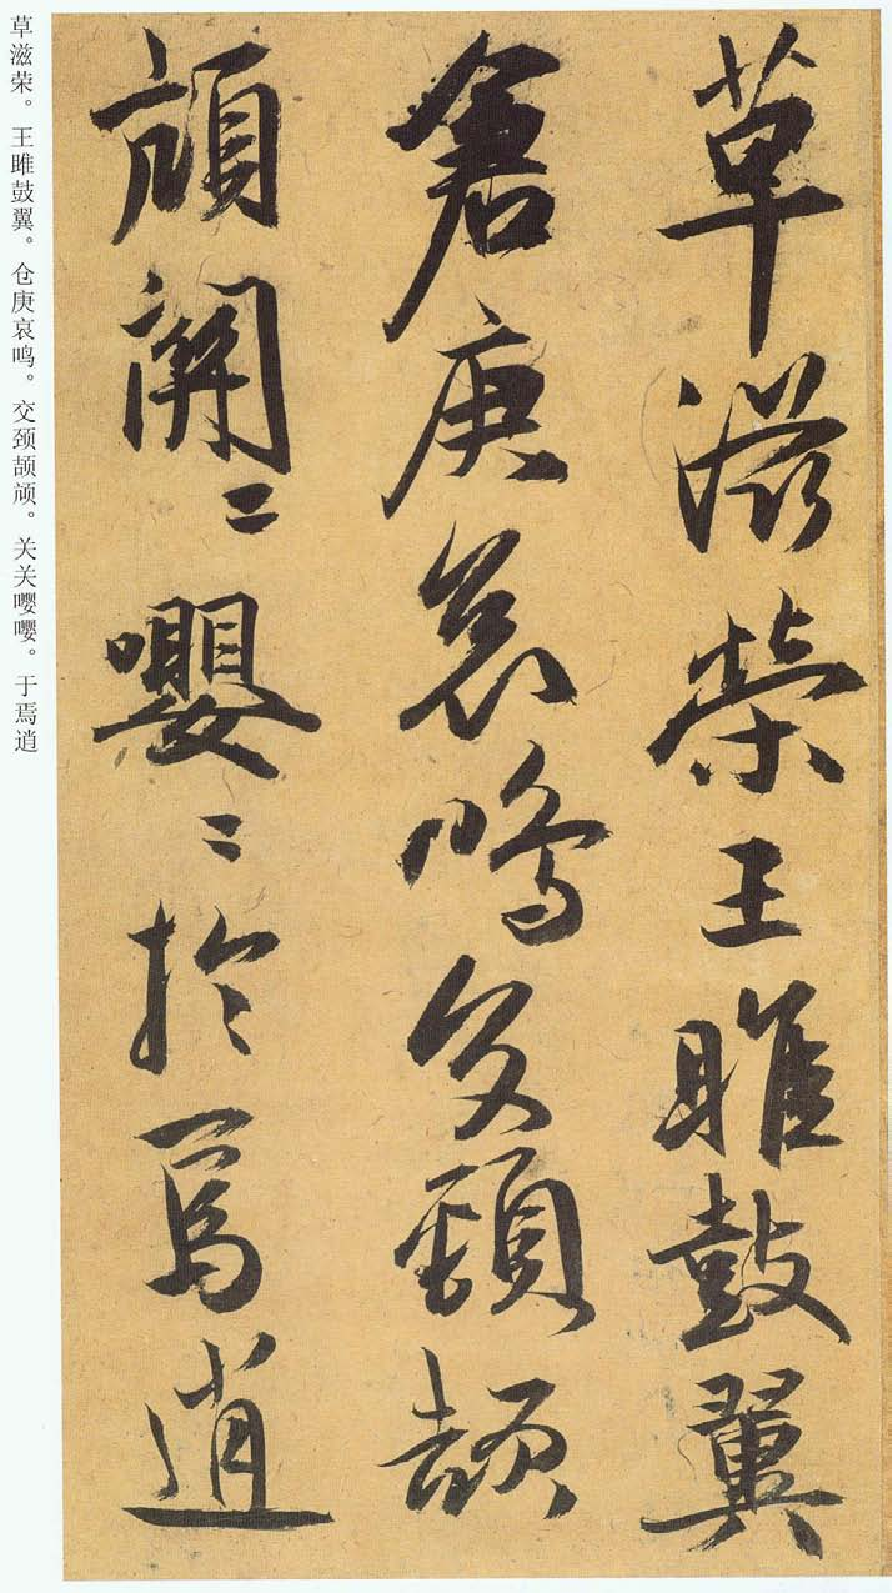 草滋榮王雎鼓翼
倉庚哀鳴交頸頡
頏關〻嚶〻於焉逍
草滋荣。王雎鼓翼。仓庚哀鸣。交颈颉颃。关关嘤嘤。于焉逍